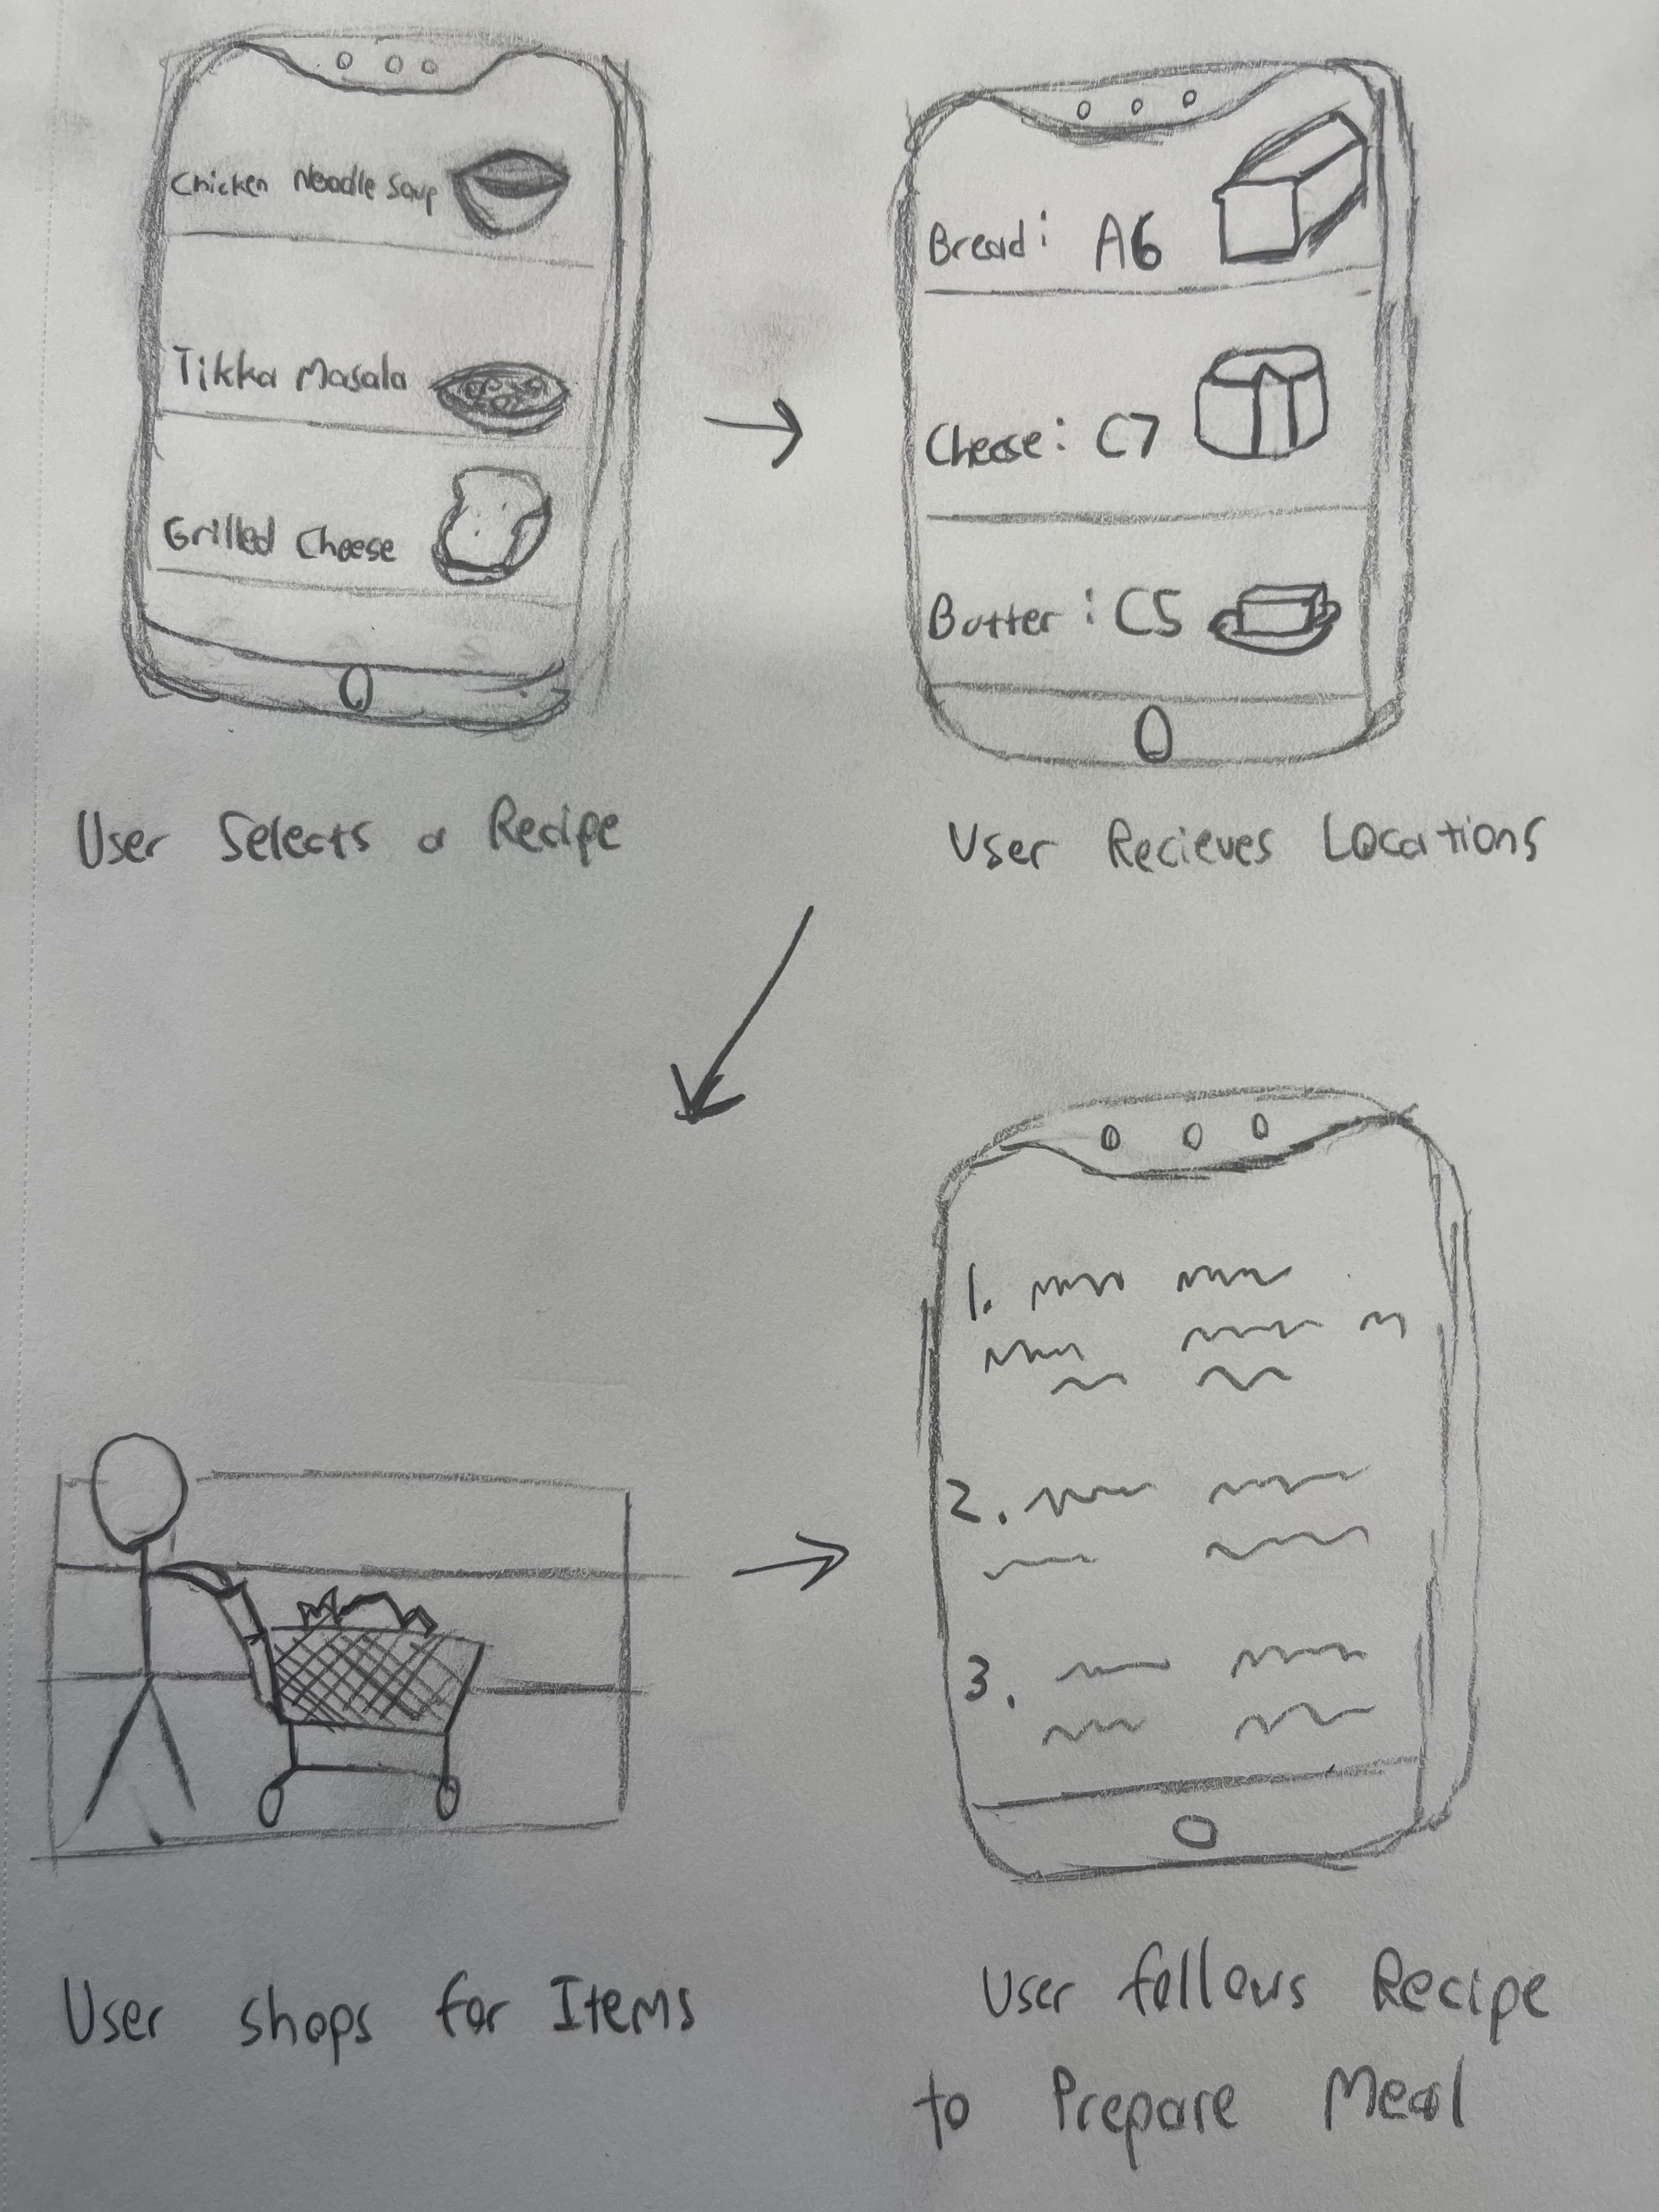 Chicken Noodle Soup
Tikka Masala
Grilled Cheese
User Selects a Recipe
Bread: A6
Cheese: C7
Butter: C5
User Recieves Locations
User shops for Items
1.
2.
3.
User follows Recipe
to Prepare Meal